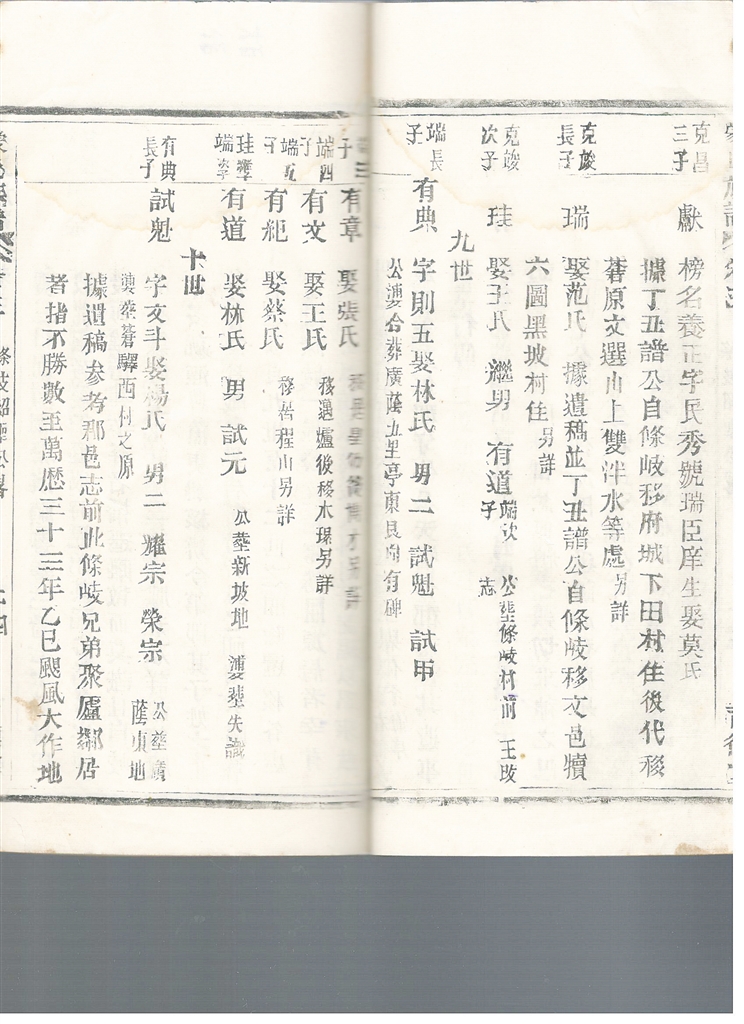 克昌三子 獻 榜名養正字民秀號瑞臣庠生娶莫氏
據丁丑譜公自條岐移府城下田村住後代移
蒼原文選山上雙泮水等處另詳
克竣長子 瑞 娶范氏 據遺稿並丁丑譜公自條岐移文邑犢
六圖黑坡村住另詳
克竣次子 珪 娶王氏 繼男 有道端次子 公塟條岐村前 王
九世
端長子 有典 字則五娶林氏 男二 試魁 試甲
公婆合葬廣蔭九里亭東艮向有碑
有章 娶張氏
端四子 有文 娶王氏 移邁爐後移水環另詳
端五子 有紀 娶蔡氏 移居程山另詳
珪 端 有道 娶林氏 男 試元 公塟新坡地 婆塟失識
十世
有典長子 試魁 字文斗娶楊氏 男二 耀宗 榮宗 公塟 蔭東地
葬蒼驛西村之原
據遺稿參考郡邑志前此條岐兄弟聚廬鄰居
者指不勝數至萬歷三十三年乙巳颶風大作地